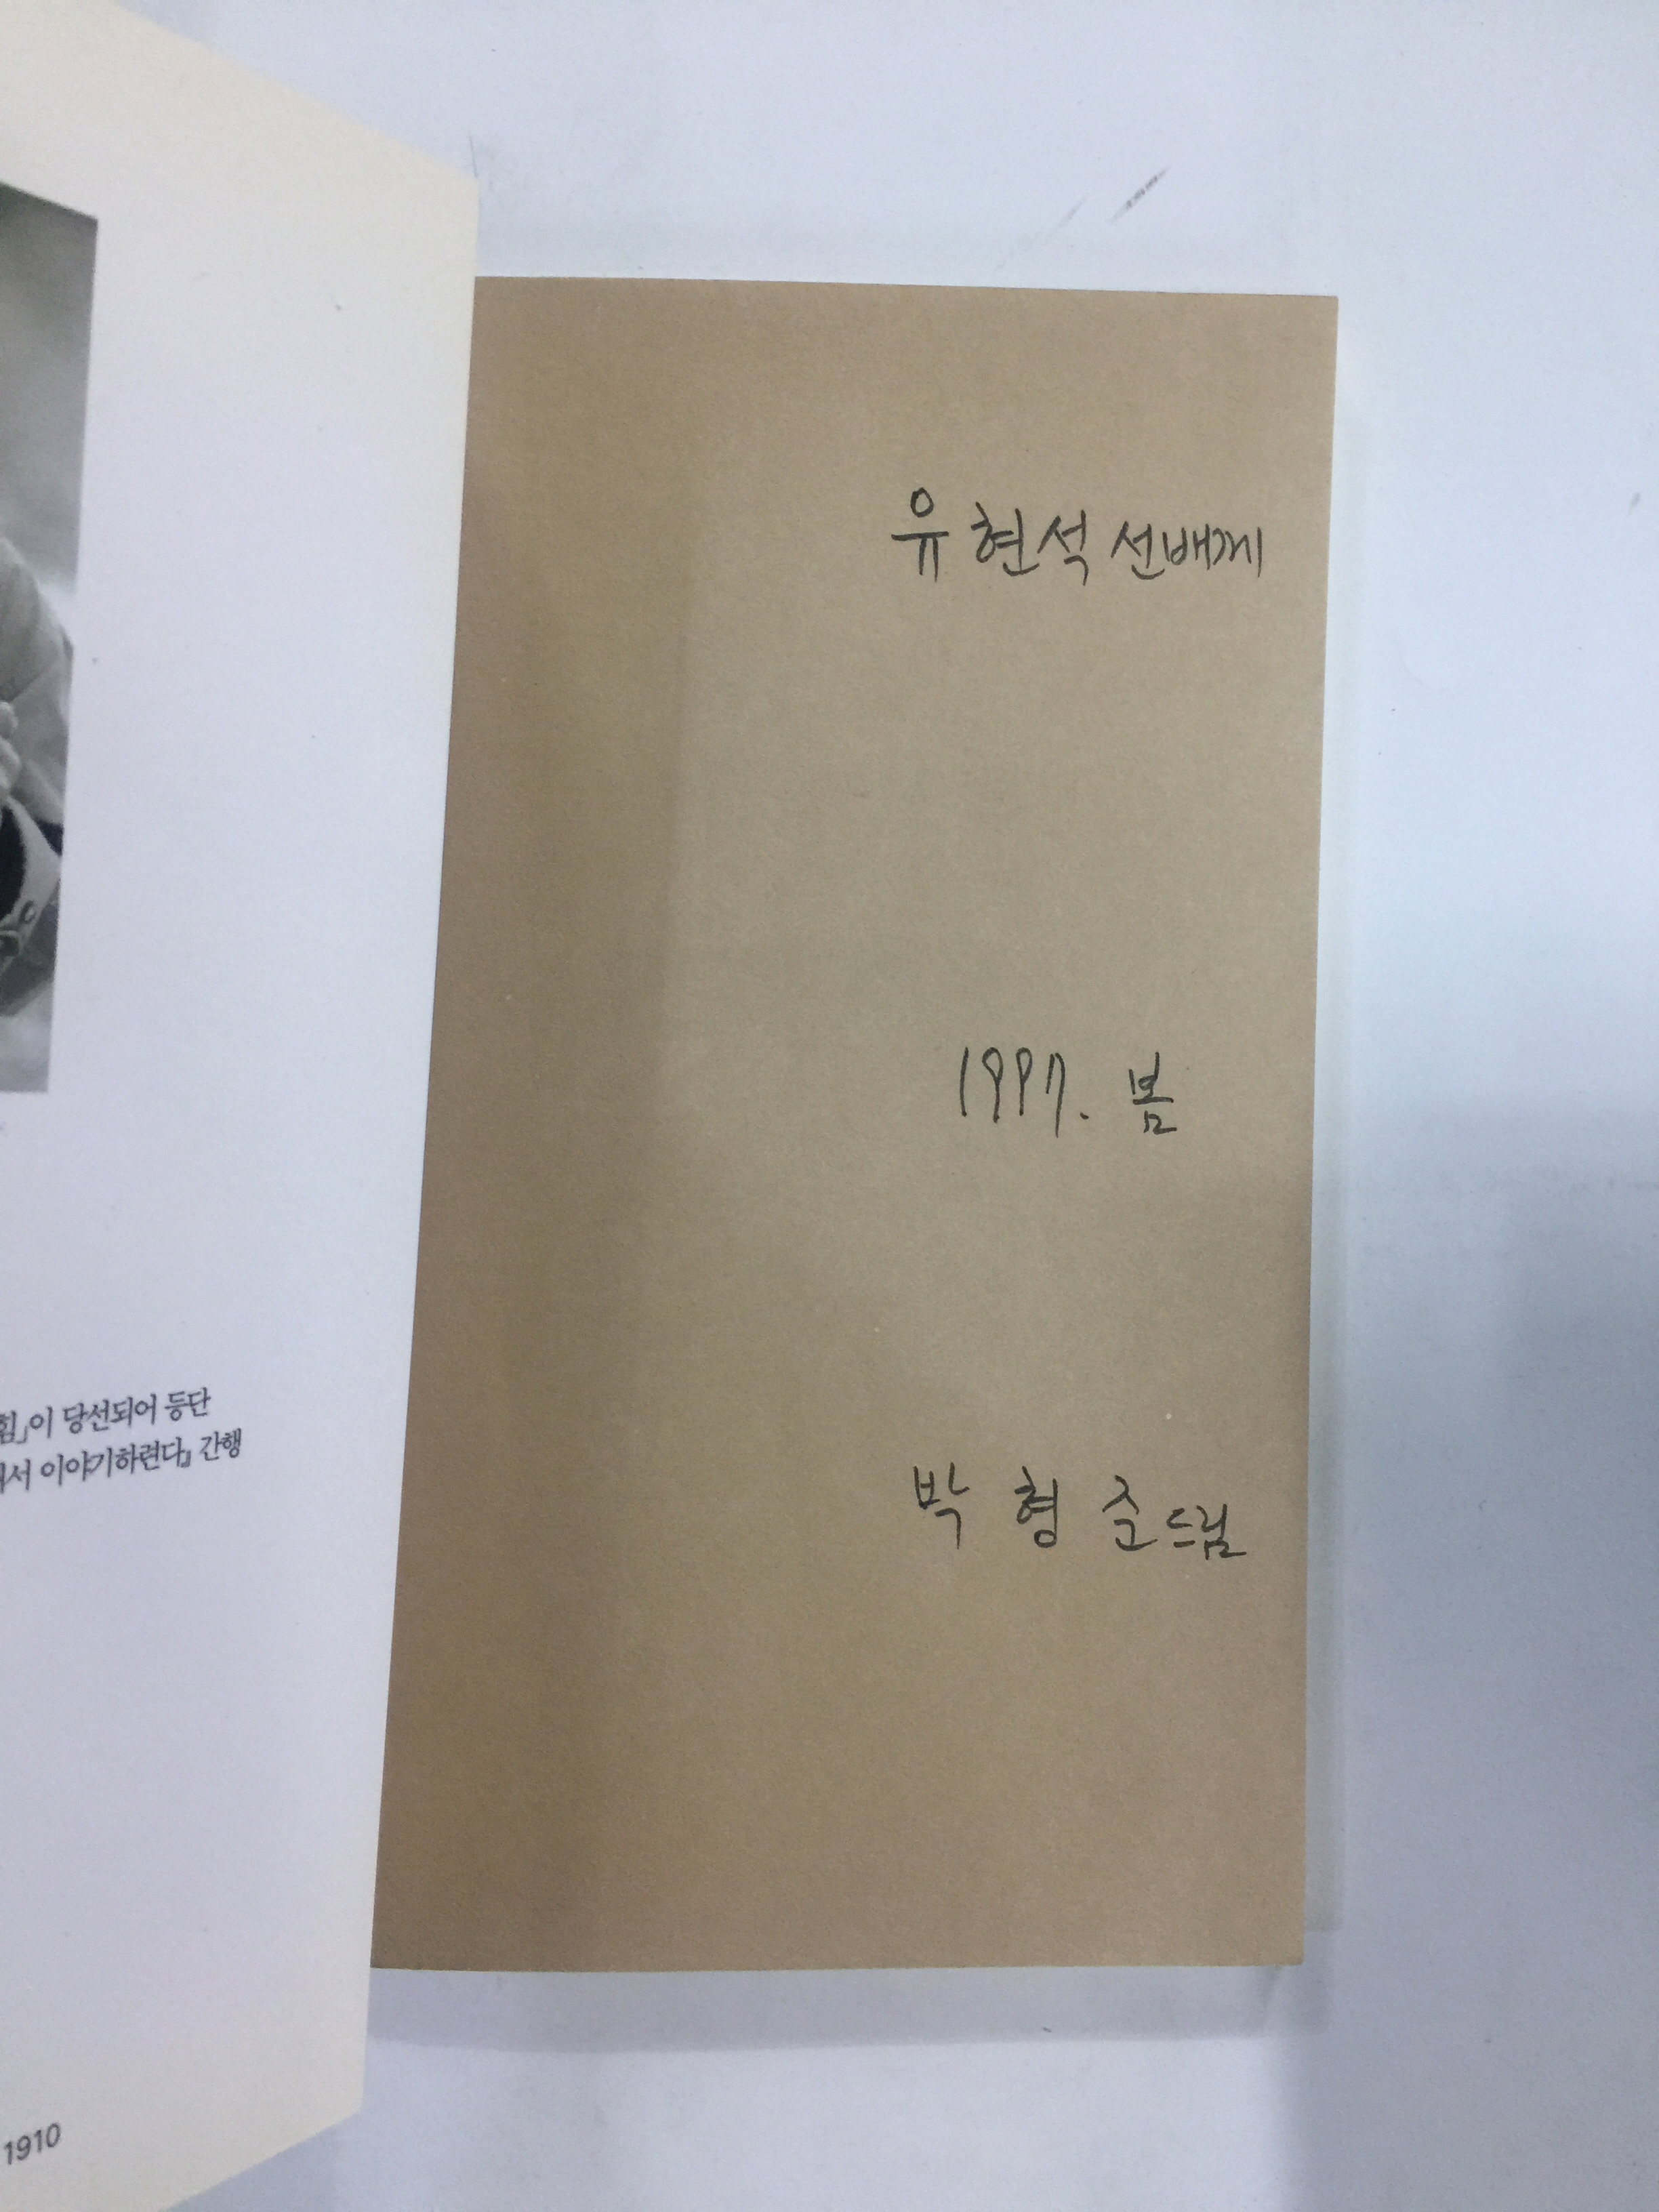 힘」이 당선되어 등단
서 이야기하련다』 간행
1910
유현석 선배께
1997. 봄
박형준 드림